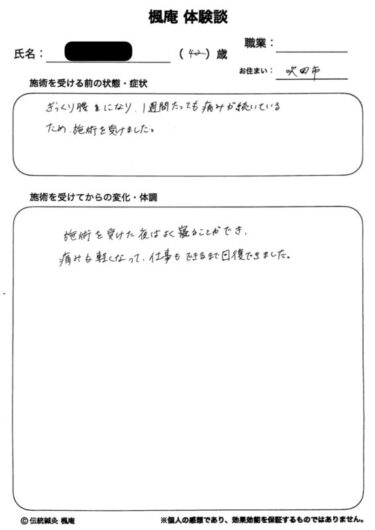 楓庵 体験談
氏名：
（42）歳
職業：
お住まい： 吹田市
施術を受ける前の状態・症状
ぎっくり腰になり、1週間たっても痛みが続いている
ため、施術を受けました。
施術を受けてからの変化・体調
施術を受けた夜はよく寝ることができ、
痛みも軽くなって、仕事もできるまで回復できました。
© 伝統鍼灸 楓庵
※個人の感想であり、効果効能を保証するものではありません。